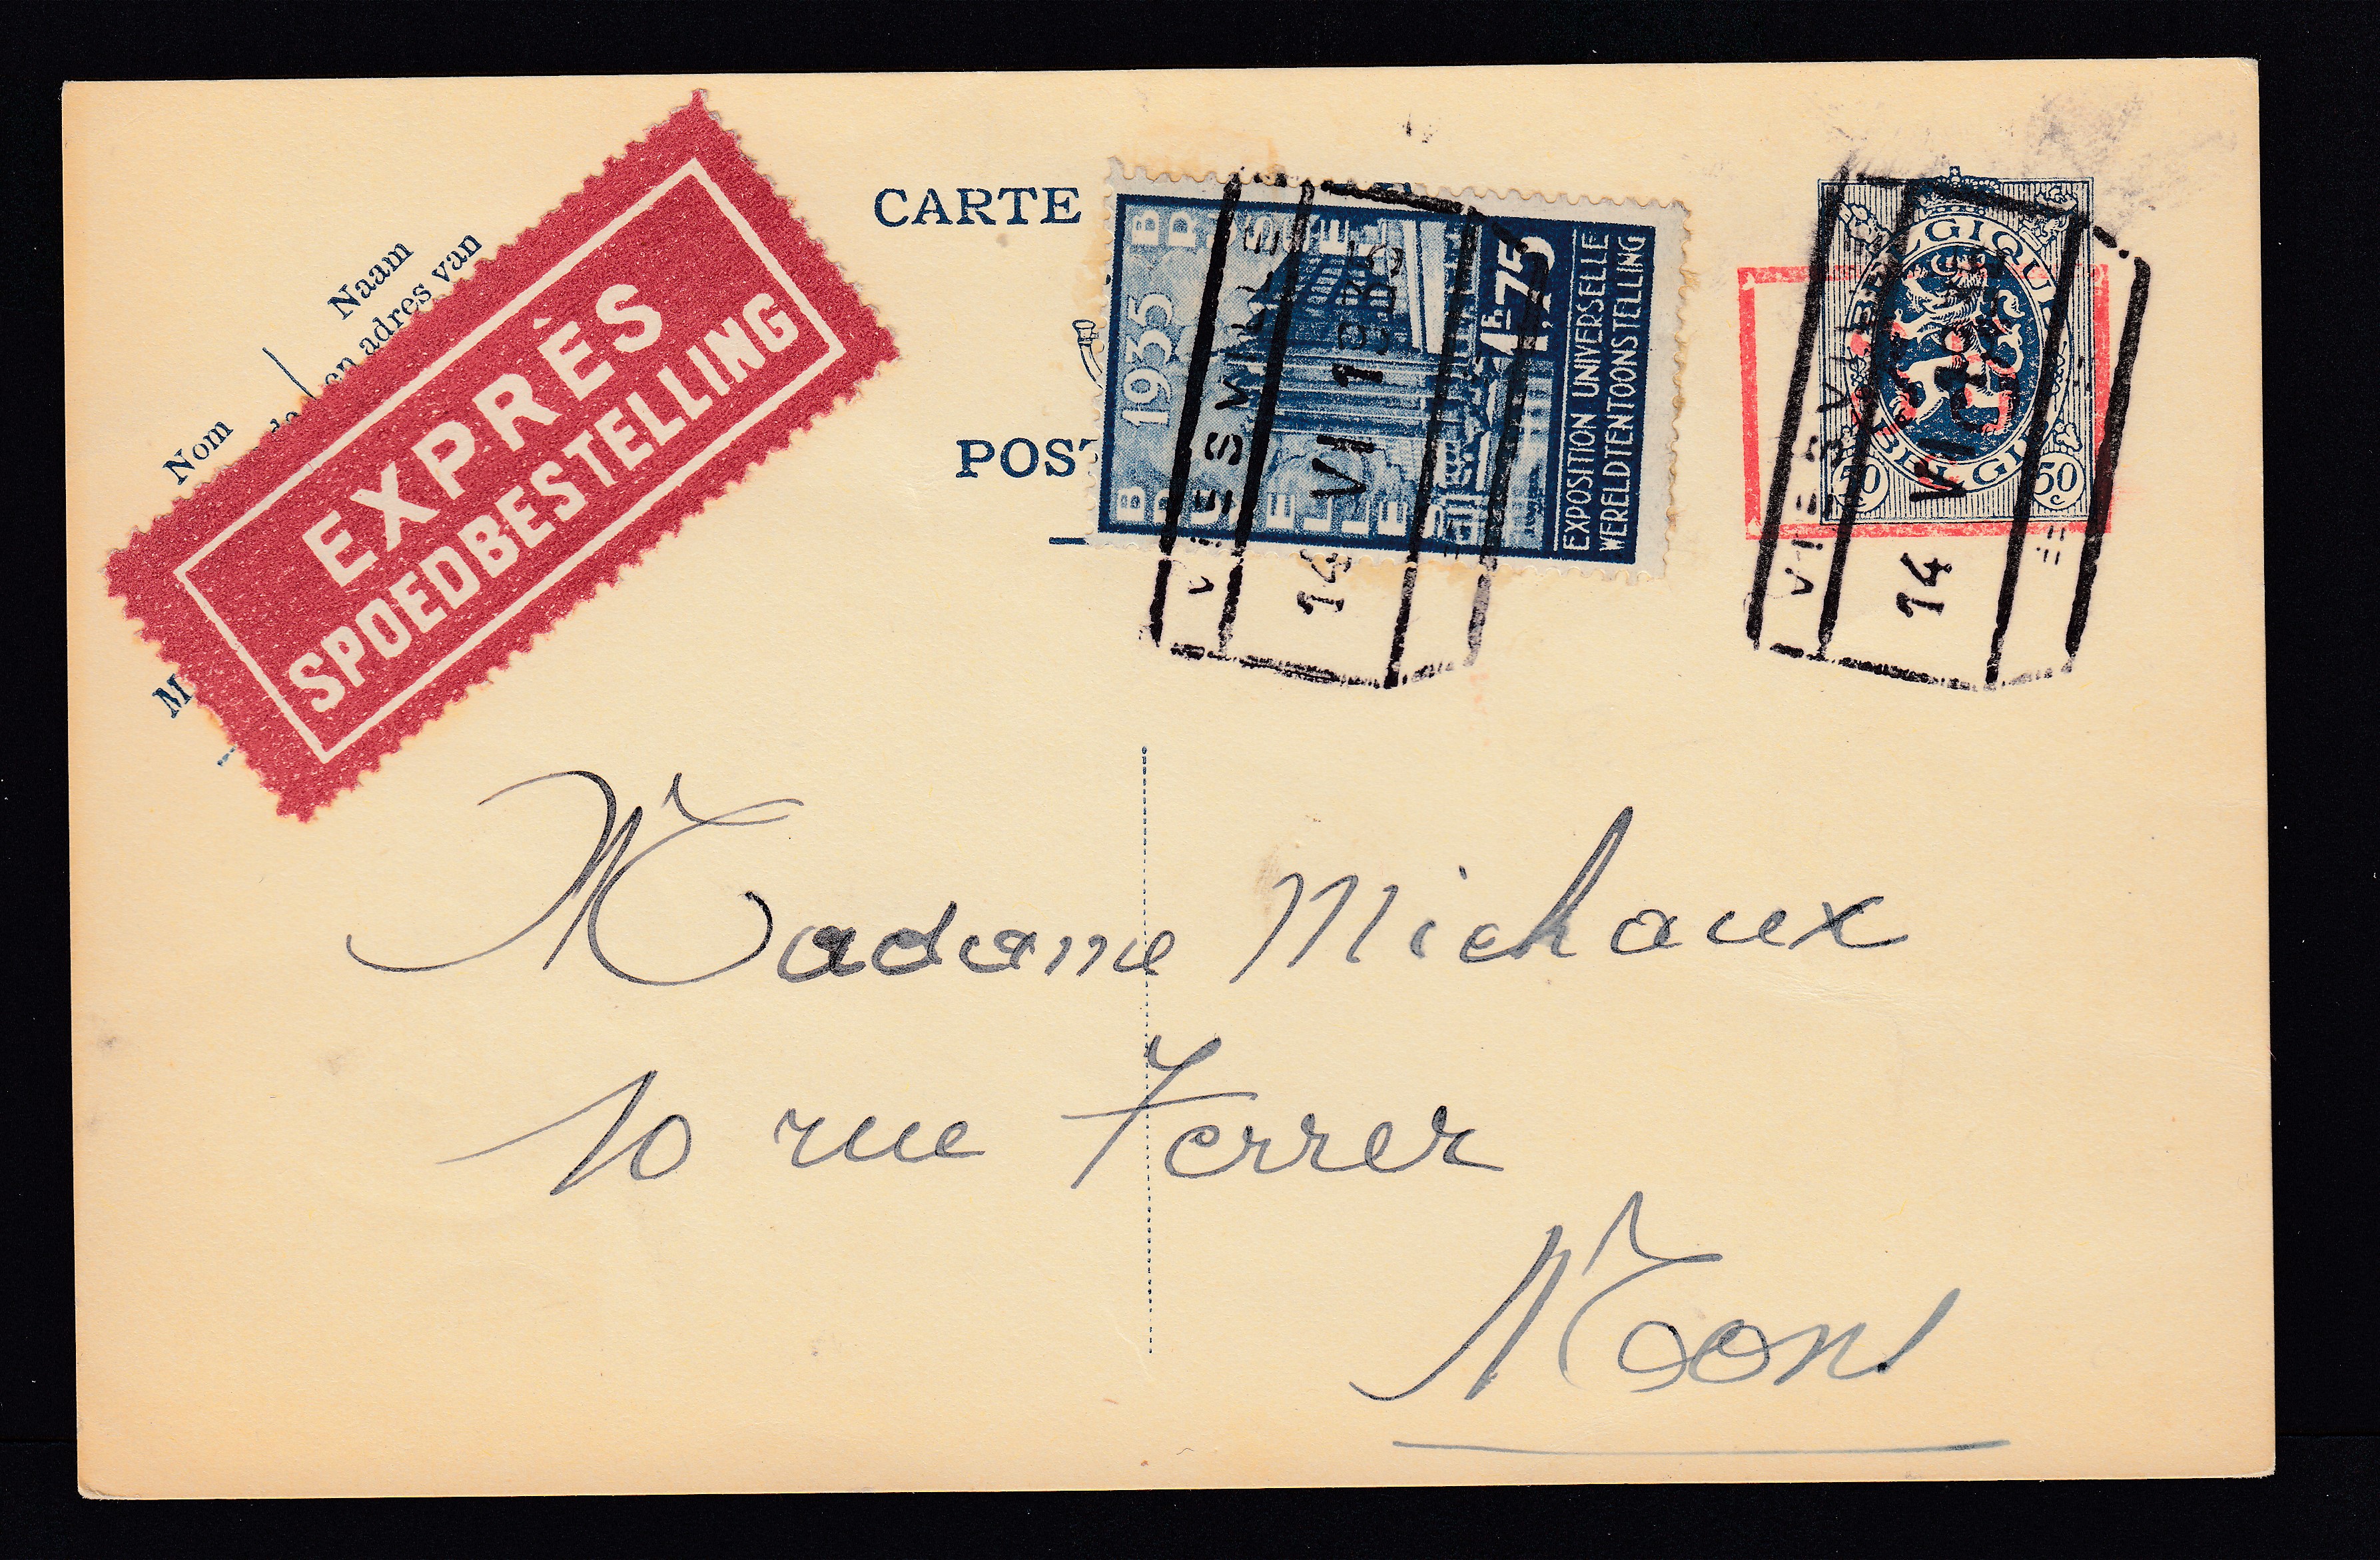 Naam
en adres van
Nom
M
EXPRÈS
SPOEDBESTELLING
CARTE
POST
1935
1F.75
1,75
EXPOSITION UNIVERSELLE
WERELDTENTOONSTELLING
14 VI 1935
BELGIQUE
BELGIË
50 50
14 VI
Madame Michaux
10 rue Ferrer
Mons